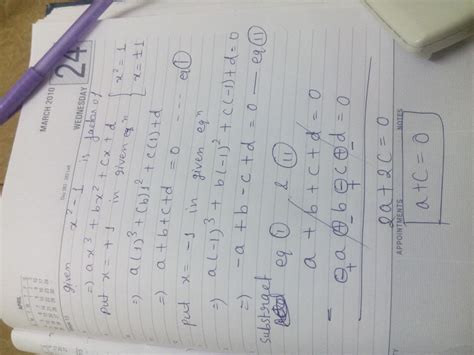 MARCH 2010
24
WEDNESDAY
given x² - 1 is factor of
⇒) ax³ + bx² + cx + d { x² = 1
x = ±1
put x = +1 in given eqⁿ
⇒) a(1)³ + (b)1² + c(1) + d
⇒) a + b + c + d = 0 --- eq Ⓘ
put x = -1 in given eqⁿ
⇒) a(-1)³ + b(-1)² + c(-1) + d = 0
⇒) -a + b - c + d = 0 — eq Ⅱ
substract eq Ⓘ & Ⅱ
a + b + c + d = 0
- a + b - c + d = 0
2a + 2c = 0
a + c = 0
APPOINTMENTS
NOTES